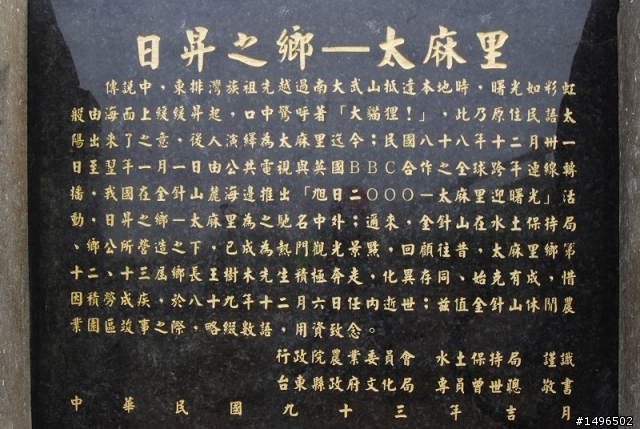 日昇之鄉—太麻里
傳說中,東排灣族祖先越過南大武山抵本地時,曙光如彩虹
般由海面上緩緩昇起,口中驚呼著「大貓狸!」,此乃原住民語太
陽出來了之意,後人演繹為太麻里迄今;民國八十八年十二月卅一
日至翌年一月一日由公共電視與英國BBC合作之全球跨年連線轉
播,我國在金針山麓海邊推出「旭日二〇〇〇—太麻里迎曙光」活
動,日昇之鄉—太麻里為之馳名中外;邇來,金針山在水土保持局
、鄉公所營造之下,已成為熱門觀光景點,回顧往昔,太麻里鄉第
十二、十三屆鄉長王樹木先生積極奔走,化異存同,始克有成,惜
因積勞成疾,於八十九年十二月六日任內逝世;茲值金針山休閒農
業園區竣事之際,略綴數語,用資致念。
行政院農業委員會 水土保持局 謹識
台東縣政府文化局 專員曾世聰 敬書
中華民國九十三年吉月
#1496502